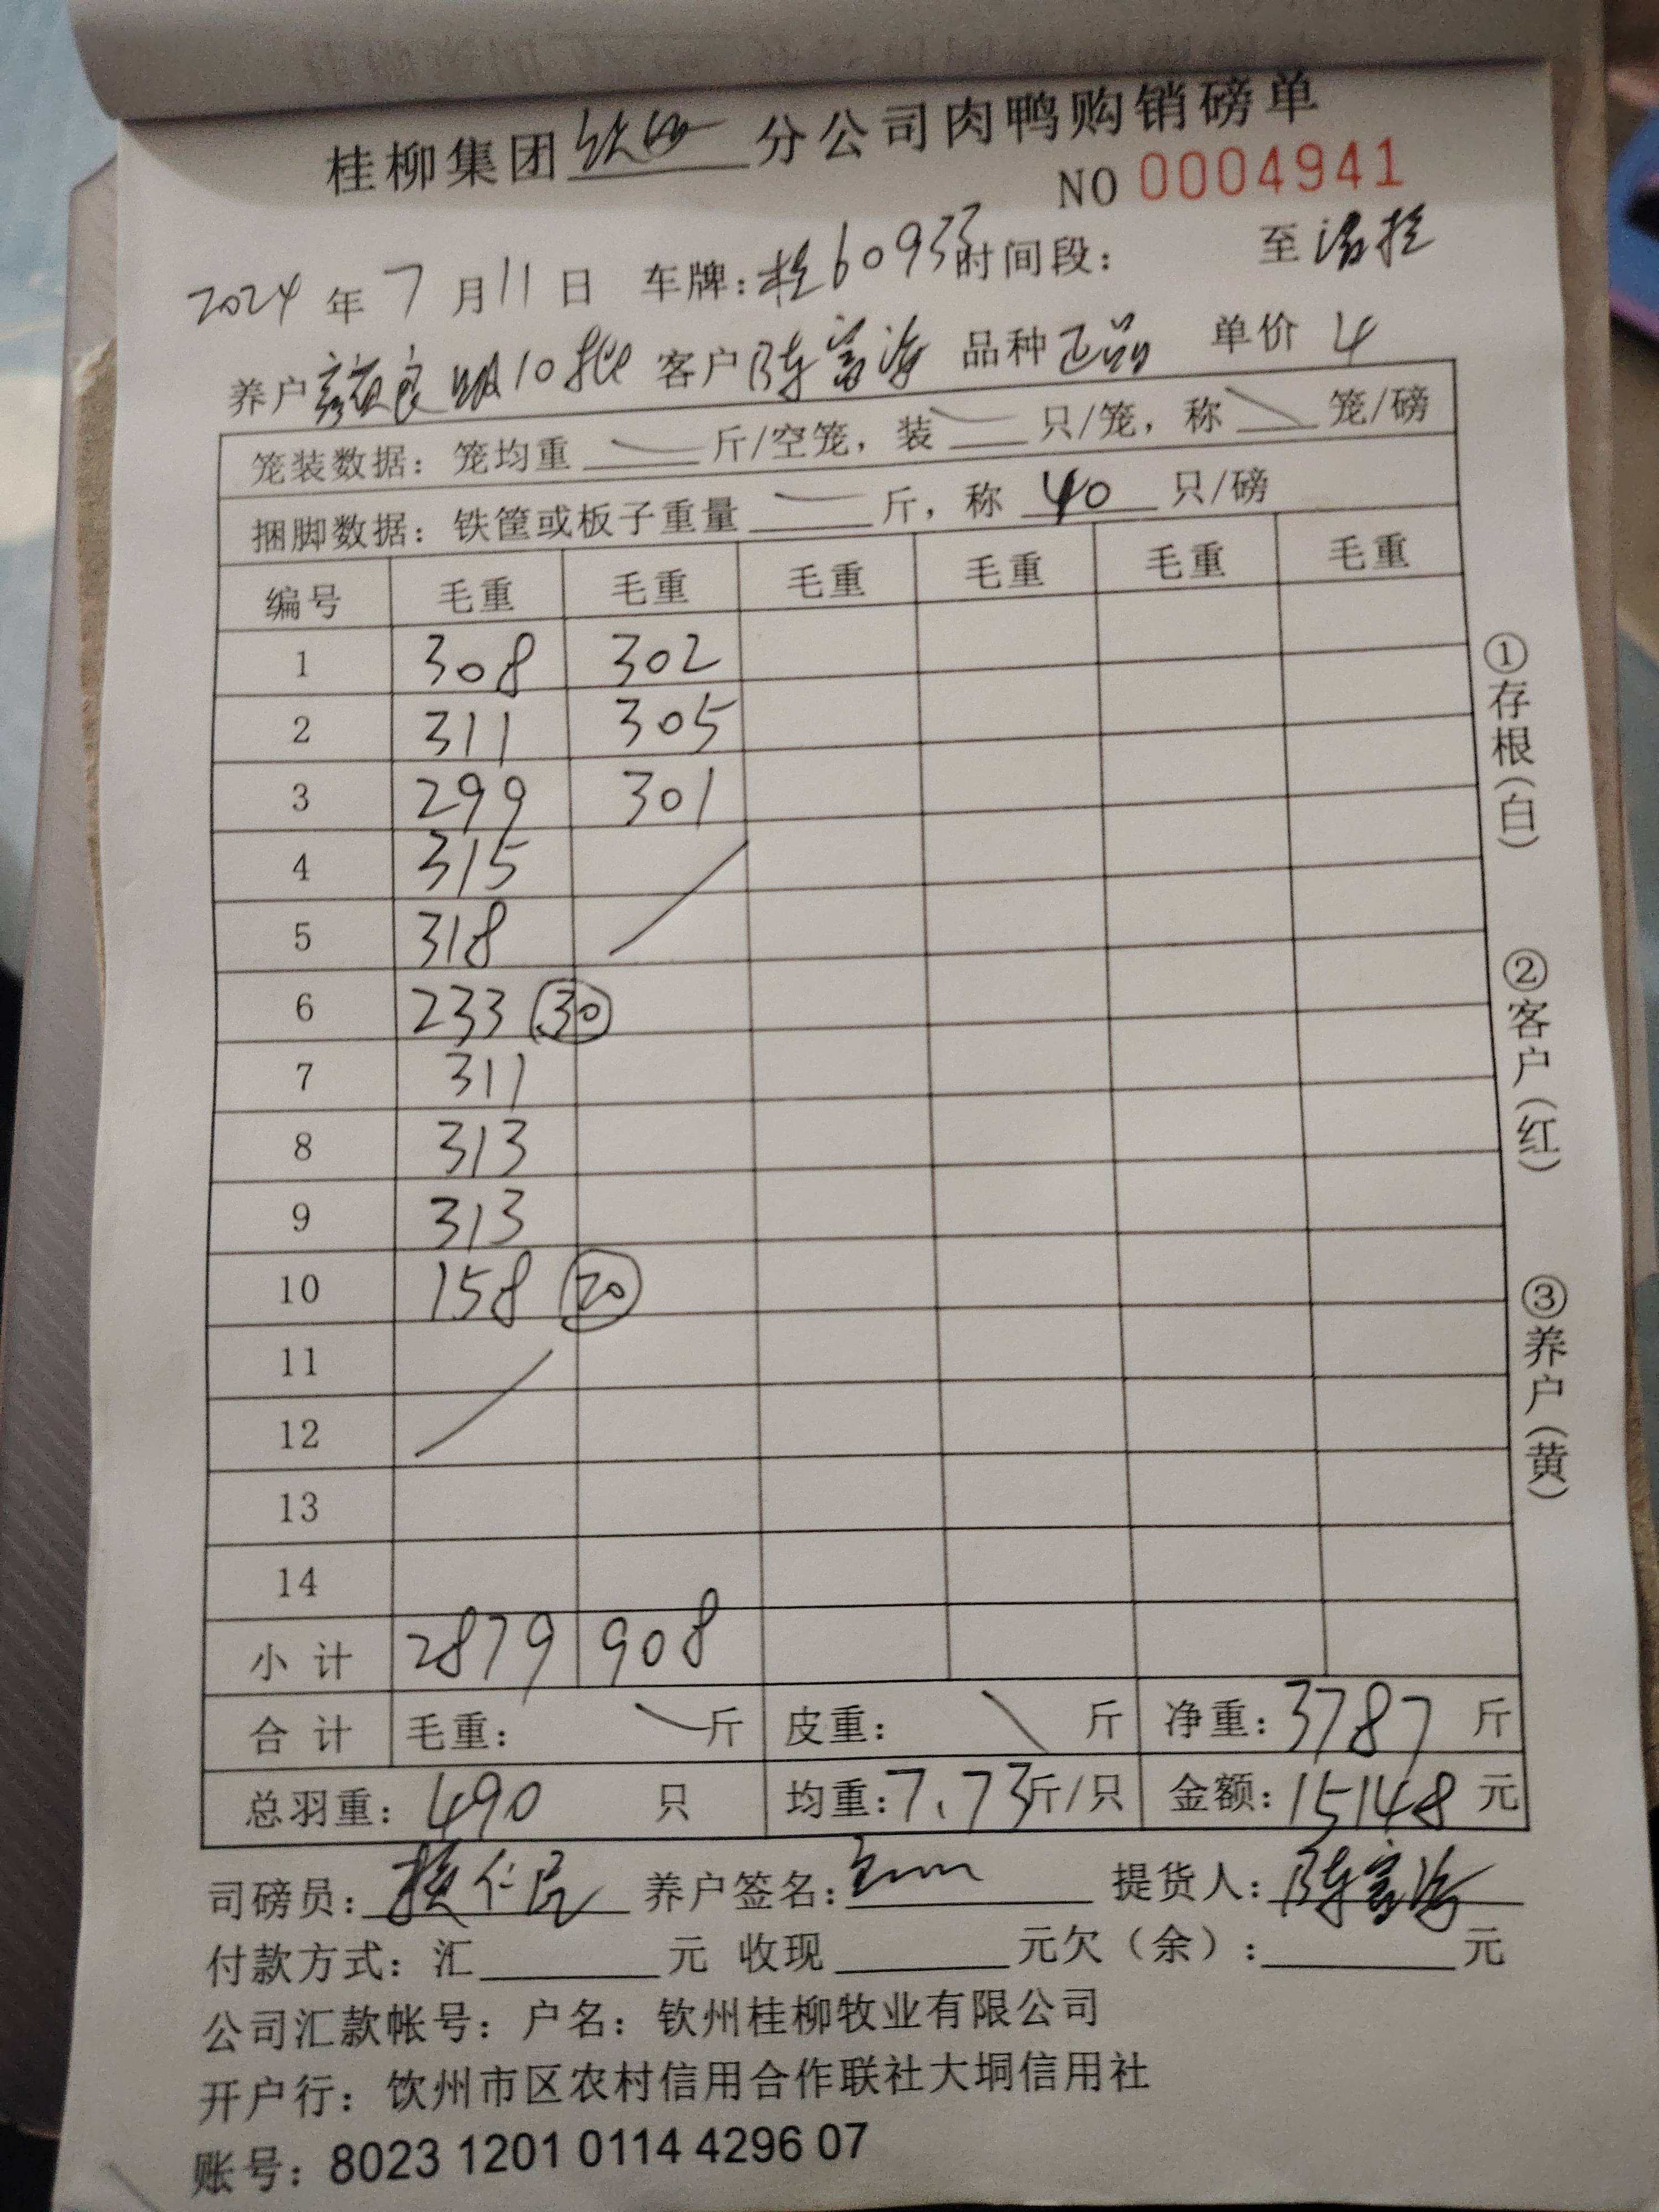 桂柳集团钦州分公司肉鸭购销磅单
NO 0004941
2024年7月11日 车牌:桂60933时间段: 至
养户 10批 客户陈富海 品种正品 单价 4
笼装数据: 笼均重 斤/空笼, 装 只/笼, 称 笼/磅
捆脚数据: 铁筐或板子重量 斤, 称 40 只/磅
编号 毛重 毛重 毛重 毛重 毛重 毛重
1 308 302
2 311 305
3 299 301
4 315
5 318
6 233 30
7 311
8 313
9 313
10 158 20
11
12
13
14
小计 2879 908
合计 毛重: 斤 皮重: 斤 净重: 3787 斤
总羽重: 490 只 均重: 7.73斤/只 金额: 15148 元
司磅员: 仁民 养户签名: 提货人: 陈富海
付款方式: 汇 元 收现 元欠(余): 元
公司汇款帐号: 户名: 钦州桂柳牧业有限公司
开户行: 饮州市区农村信用合作联社大垌信用社
账号: 8023 1201 0114 4296 07
①存根(白)
②客户(红)
③养户(黄)